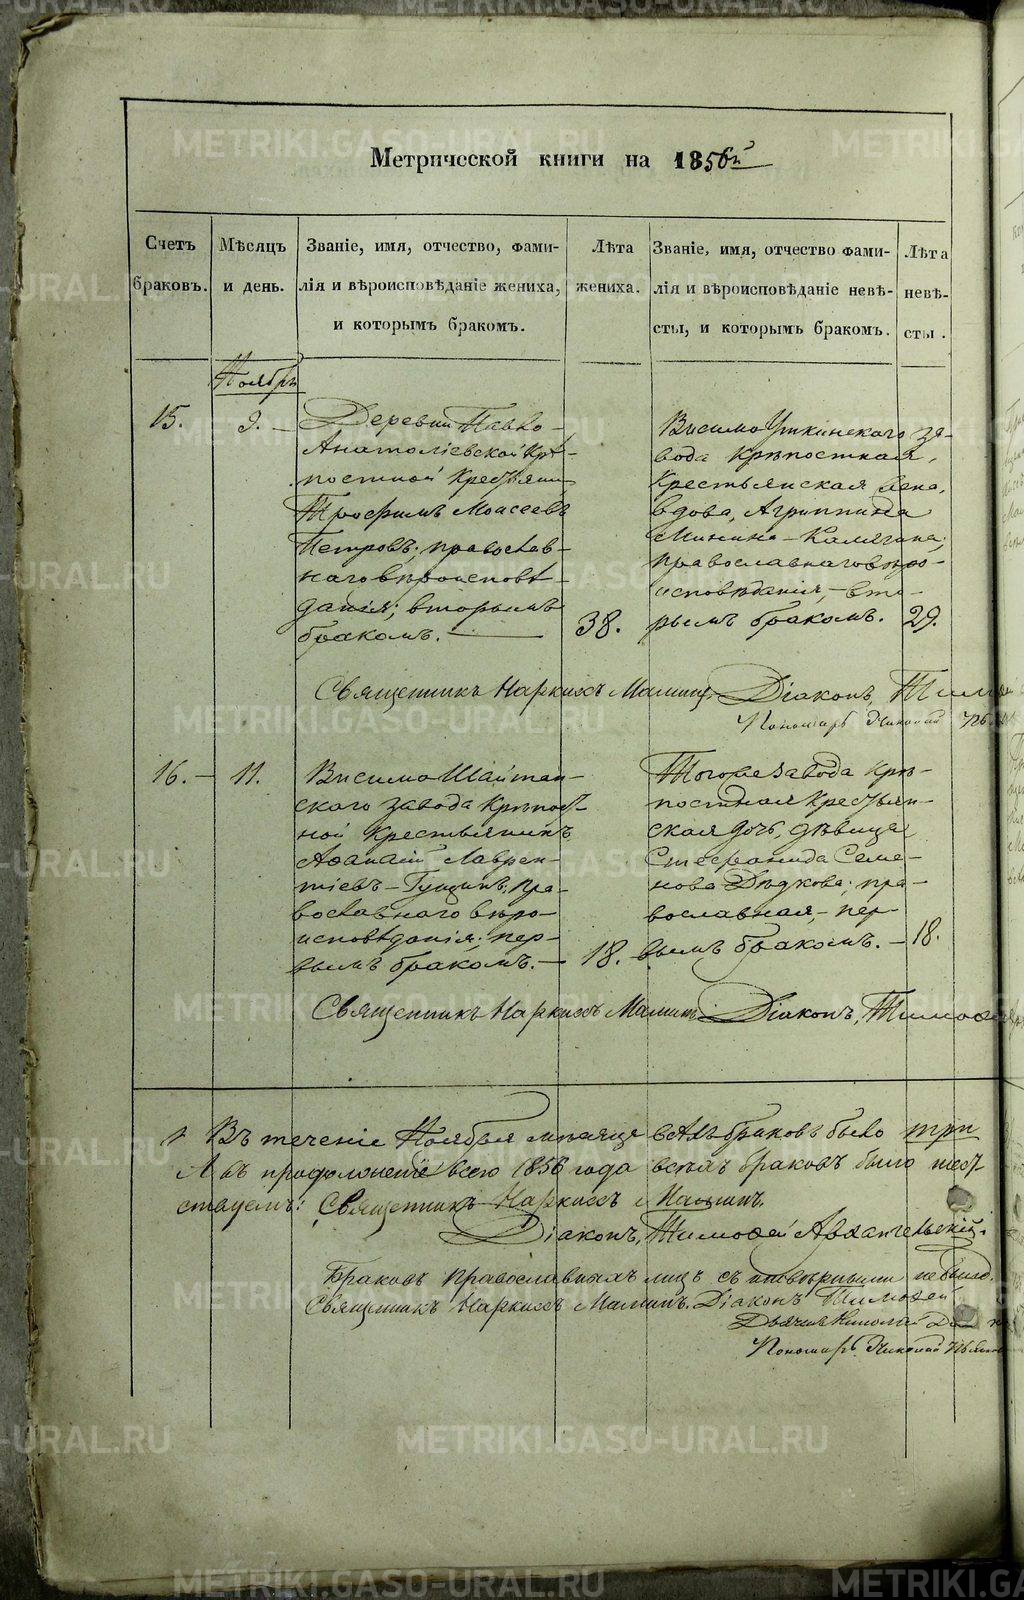 Метрической книги на 1856й
Счетъ браковъ.
Мѣсяцъ и день.
Званіе, имя, отчество, фами-
лія и вѣроисповѣданіе жениха,
и которымъ бракомъ.
Лѣта жениха.
Званіе, имя, отчество фами-
лія и вѣроисповѣданіе невѣ-
сты, и которымъ бракомъ.
Лѣта невѣ-
сты.
Ноябрь
15.
9.
Деревни Павло-
Анатоліевской Крѣ-
постной Крестьянинъ
Трофимъ Моисеевъ
Петровъ; православ-
наго вѣроисповѣ-
данія; вторымъ
бракомъ.
38.
Висимо Уткинскаго за-
вода Крѣпостная,
Крестьянская жена,
вдова, Агриппина
Минина Калягина;
православнаго вѣро-
исповѣданія, вто-
рымъ бракомъ.
29.
Священникъ Наркиссъ Маминъ. Діаконъ,
Пономарь Николай
16.
11.
Висимо Шайтан-
скаго завода Крѣпост-
ной Крестьянинъ
Афанасій Лаврен-
тіевъ Гущинъ; пра-
вославнаго вѣро-
исповѣданія; пер-
вымъ бракомъ.
18.
Тогоже завода Крѣ-
постная Крестьян-
ская дочь, дѣвица
Стефанида Семе-
нова Дѣдкова; пра-
вославная, пер-
вымъ бракомъ.
18.
Священникъ Наркиссъ Маминъ Діаконъ,
Въ теченіе Ноября мѣсяца всѣхъ браковъ было три
А въ продолженіе всего 1856 года всѣхъ браковъ было шест-
Священникъ Наркиссъ Маминъ.
Діаконъ, Тимофей Архангельскій.
Браковъ православныхъ лицъ съ иновѣрными не было.
Священникъ Наркиссъ Маминъ. Діаконъ Тимофей
Дьячекъ Николай
Пономарь Николай
METRIKI.GASO-URAL.RU